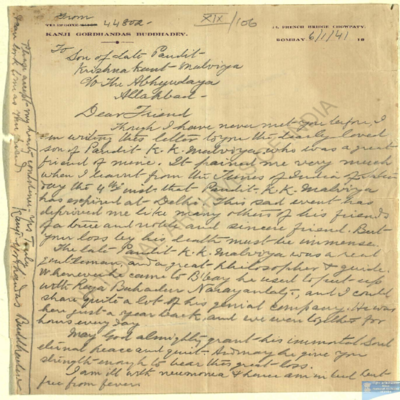 From
44802
XIX/106
KANJI GORDHANDAS BUDDHADEV.
BOMBAY 6/1/41 19
To
Son of late Pandit
Krishna Kant Malviya
To The Abhyudaya
Allahbad
Dear Friend
Though I have never met you before, I
am writing this letter to you the dearly loved
son of Pandit K. K. Malviya, who was a great
friend of mine. It pained me very much
when I learnt from the Times of India
day the 4th inst. that Pandit K. K. Malviya
has expired at Delhi. This sad event has
deprived me like many others of his friends
of a true and noble and sincere friend. But
your loss by his death must be immense.
The late Pandit K. K. Malviya was a real
gentleman, and a great philosopher & guide.
Whenever he came to B'bay he used to put up
with Raja Bahadur Narayanlalji, and I could
share quite a lot of his genial company. He was
here just a year back and we even together for
hours every day.
May God almighty grant his immortal Soul
eternal peace and And may he give you
strength enough to bear this great loss.
I am ill with neumonea & hence am in bed but
free from fever.
Please accept my heart condolences. Yrs Truly
Kanji Gordhandas Buddhadev